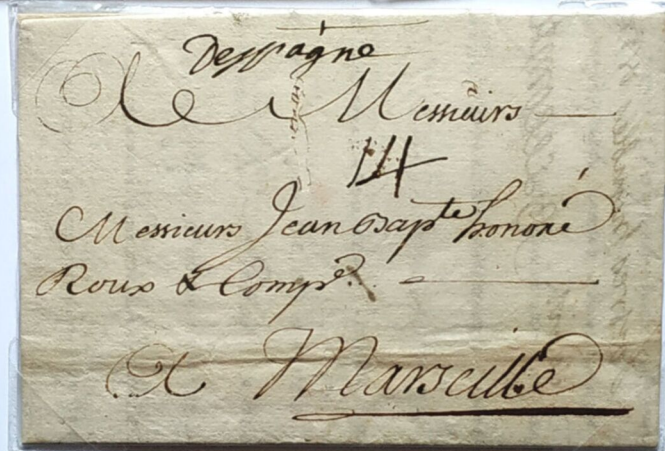 Despagne
A Messieurs
14
Messieurs Jean Bapte honoré
Roux & Compe.
A Marseille